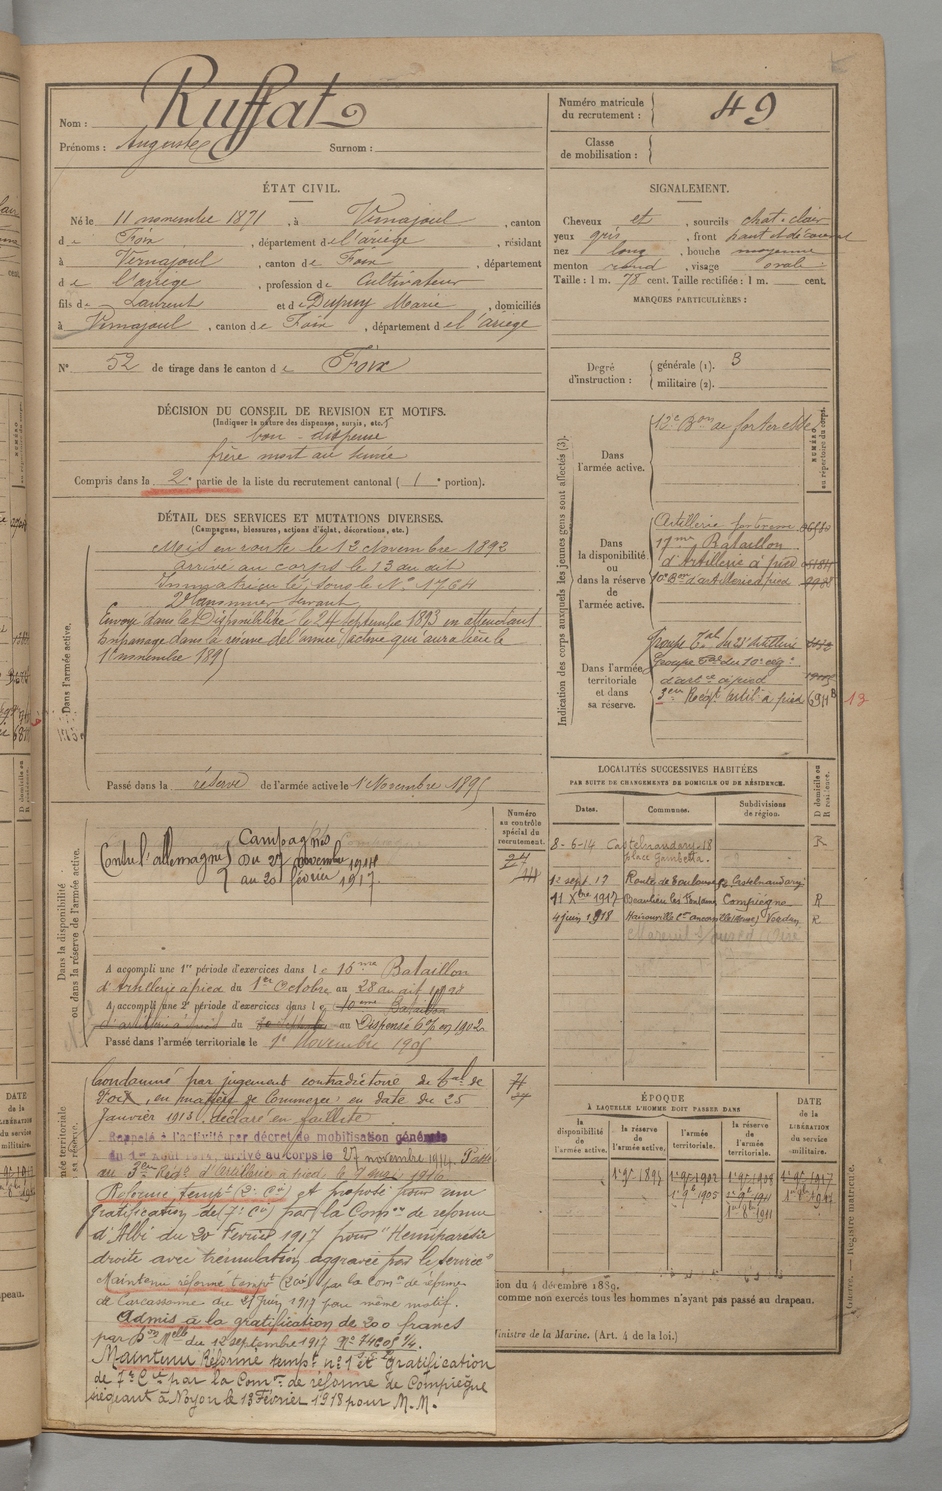 Nom : Ruffat
Prénoms : Auguste Surnom :
Numéro matricule du recrutement : 49
Classe de mobilisation :
ÉTAT CIVIL.
Né le 11 novembre 1871, à Vernajoul, canton
de Foix, département de l'ariège, résidant
à Vernajoul, canton de Foix, département
de l'ariège, profession de Cultivateur
fils de Laurent et de Dupuy Marie, domiciliés
à Vernajoul, canton de Foix, département de l'ariège
N° 52 de tirage dans le canton de Foix
SIGNALEMENT.
Cheveux et, sourcils chat. clair
yeux gris, front haut et découvert
nez long, bouche moyenne
menton rond, visage ovale
Taille : 1 m. 78 cent. Taille rectifiée : 1 m. cent.
MARQUES PARTICULIÈRES :
Degré d'instruction : générale (1). 3
militaire (2).
DÉCISION DU CONSEIL DE REVISION ET MOTIFS.
(Indiquer la nature des dispenses, sursis, etc.)
bon - dispensé
frère mort au service
Compris dans la 2e partie de la liste du recrutement cantonal ( 1e portion).
DÉTAIL DES SERVICES ET MUTATIONS DIVERSES.
(Campagnes, blessures, actions d'éclat, décorations, etc.)
Dans l'armée active.
Mis en route le 12 Novembre 1892
arrivé au corps le 13 du dit
Immatriculé sous le N° 1764
2e canonnier servant
Envoyé dans la Disponibilité le 24 septembre 1893 en attendant
son passage dans la réserve de l'armée active qui aura lieu le
1er novembre 1895
Passé dans la réserve de l'armée active le 1er Novembre 1895
Indication des corps auxquels les jeunes gens sont affectés (3).
NUMÉRO au répertoire du corps.
Dans l'armée active.
12e Bon de forteresse
Dans la disponibilité ou dans la réserve de l'armée active.
Artillerie forteresse
17me Bataillon
d'Artillerie à pied
10e Bon d'artillerie à pied
Dans l'armée territoriale et dans sa réserve.
Groupe Tal du 21e Artillerie
Groupe Tal du 10e rég.
d'art.ie à pied
3em Régt artil. à pied 6911B 13
LOCALITÉS SUCCESSIVES HABITÉES
PAR SUITE DE CHANGEMENTS DE DOMICILE OU DE RÉSIDENCE.
Dates. Communes. Subdivisions de région. D domicile ou R résidence.
8-6-14 Castelnaudary 18 R
place Gambetta.
1er sept. 17 Route de Toulouse Castelnaudary
11 Xbre 1917 Beaulieu les Fontaines Compiègne R
4 juin 1918 Verdun R
Numéro au contrôle spécial du recrutement.
Dans la disponibilité ou dans la réserve de l'armée active.
Campagnes
Contre l'allemagne Du 27 novembre 1914
au 20 février 1917.
A accompli une 1re période d'exercices dans le 15me Bataillon
d'Artillerie à pied du 1er Octobre au 28 du dit 1898
A accompli une 2e période d'exercices dans le 10eme Bataillon
d'artillerie à pied du au Dispensé en 1902
Passé dans l'armée territoriale le 1er Novembre 1905
Condamné par jugement contradictoire du Tal de
Foix, en matière de Commerce, en date du 25
Janvier 1913, déclaré en faillite
Rappelé à l'activité par décret de mobilisation générale
du 1er Août 1914, arrivé au corps le 27 novembre 1914. Passé
au 3em Régt d'artillerie à pied le 1916
Réformé tempt (2e Cie) et proposé pour une
gratification de (7e Cie) par la Comon de réforme
d'Albi du 20 Février 1917 pour "Hémiparésie
droite avec trémulation aggravée par le service"
Maintenu réformé tempt (2e Cie) par la Comon de réforme
de Carcassonne du 27 juin 1917 pour même motif.
Admis à la gratification de 300 francs
par Don Melle du 12 septembre 1917
Maintenu Réformé tempt n° 1 et gratification
de 7e Cie par la Comon de réforme de Compiègne
siégeant à Noyon le 13 Février 1918 pour M.M.
ÉPOQUE
À LAQUELLE L'HOMME DOIT PASSER DANS
la disponibilité de l'armée active. la réserve de l'armée active. l'armée territoriale. la réserve de l'armée territoriale.
DATE de la LIBÉRATION du service militaire.
1er 9bre 1895
1er 9bre 1905
ion du 4 décembre 1889.
comme non exercés tous les hommes n'ayant pas passé au drapeau.
Ministre de la Marine. (Art. 4 de la loi.)
Guerre. — Registre matricule.